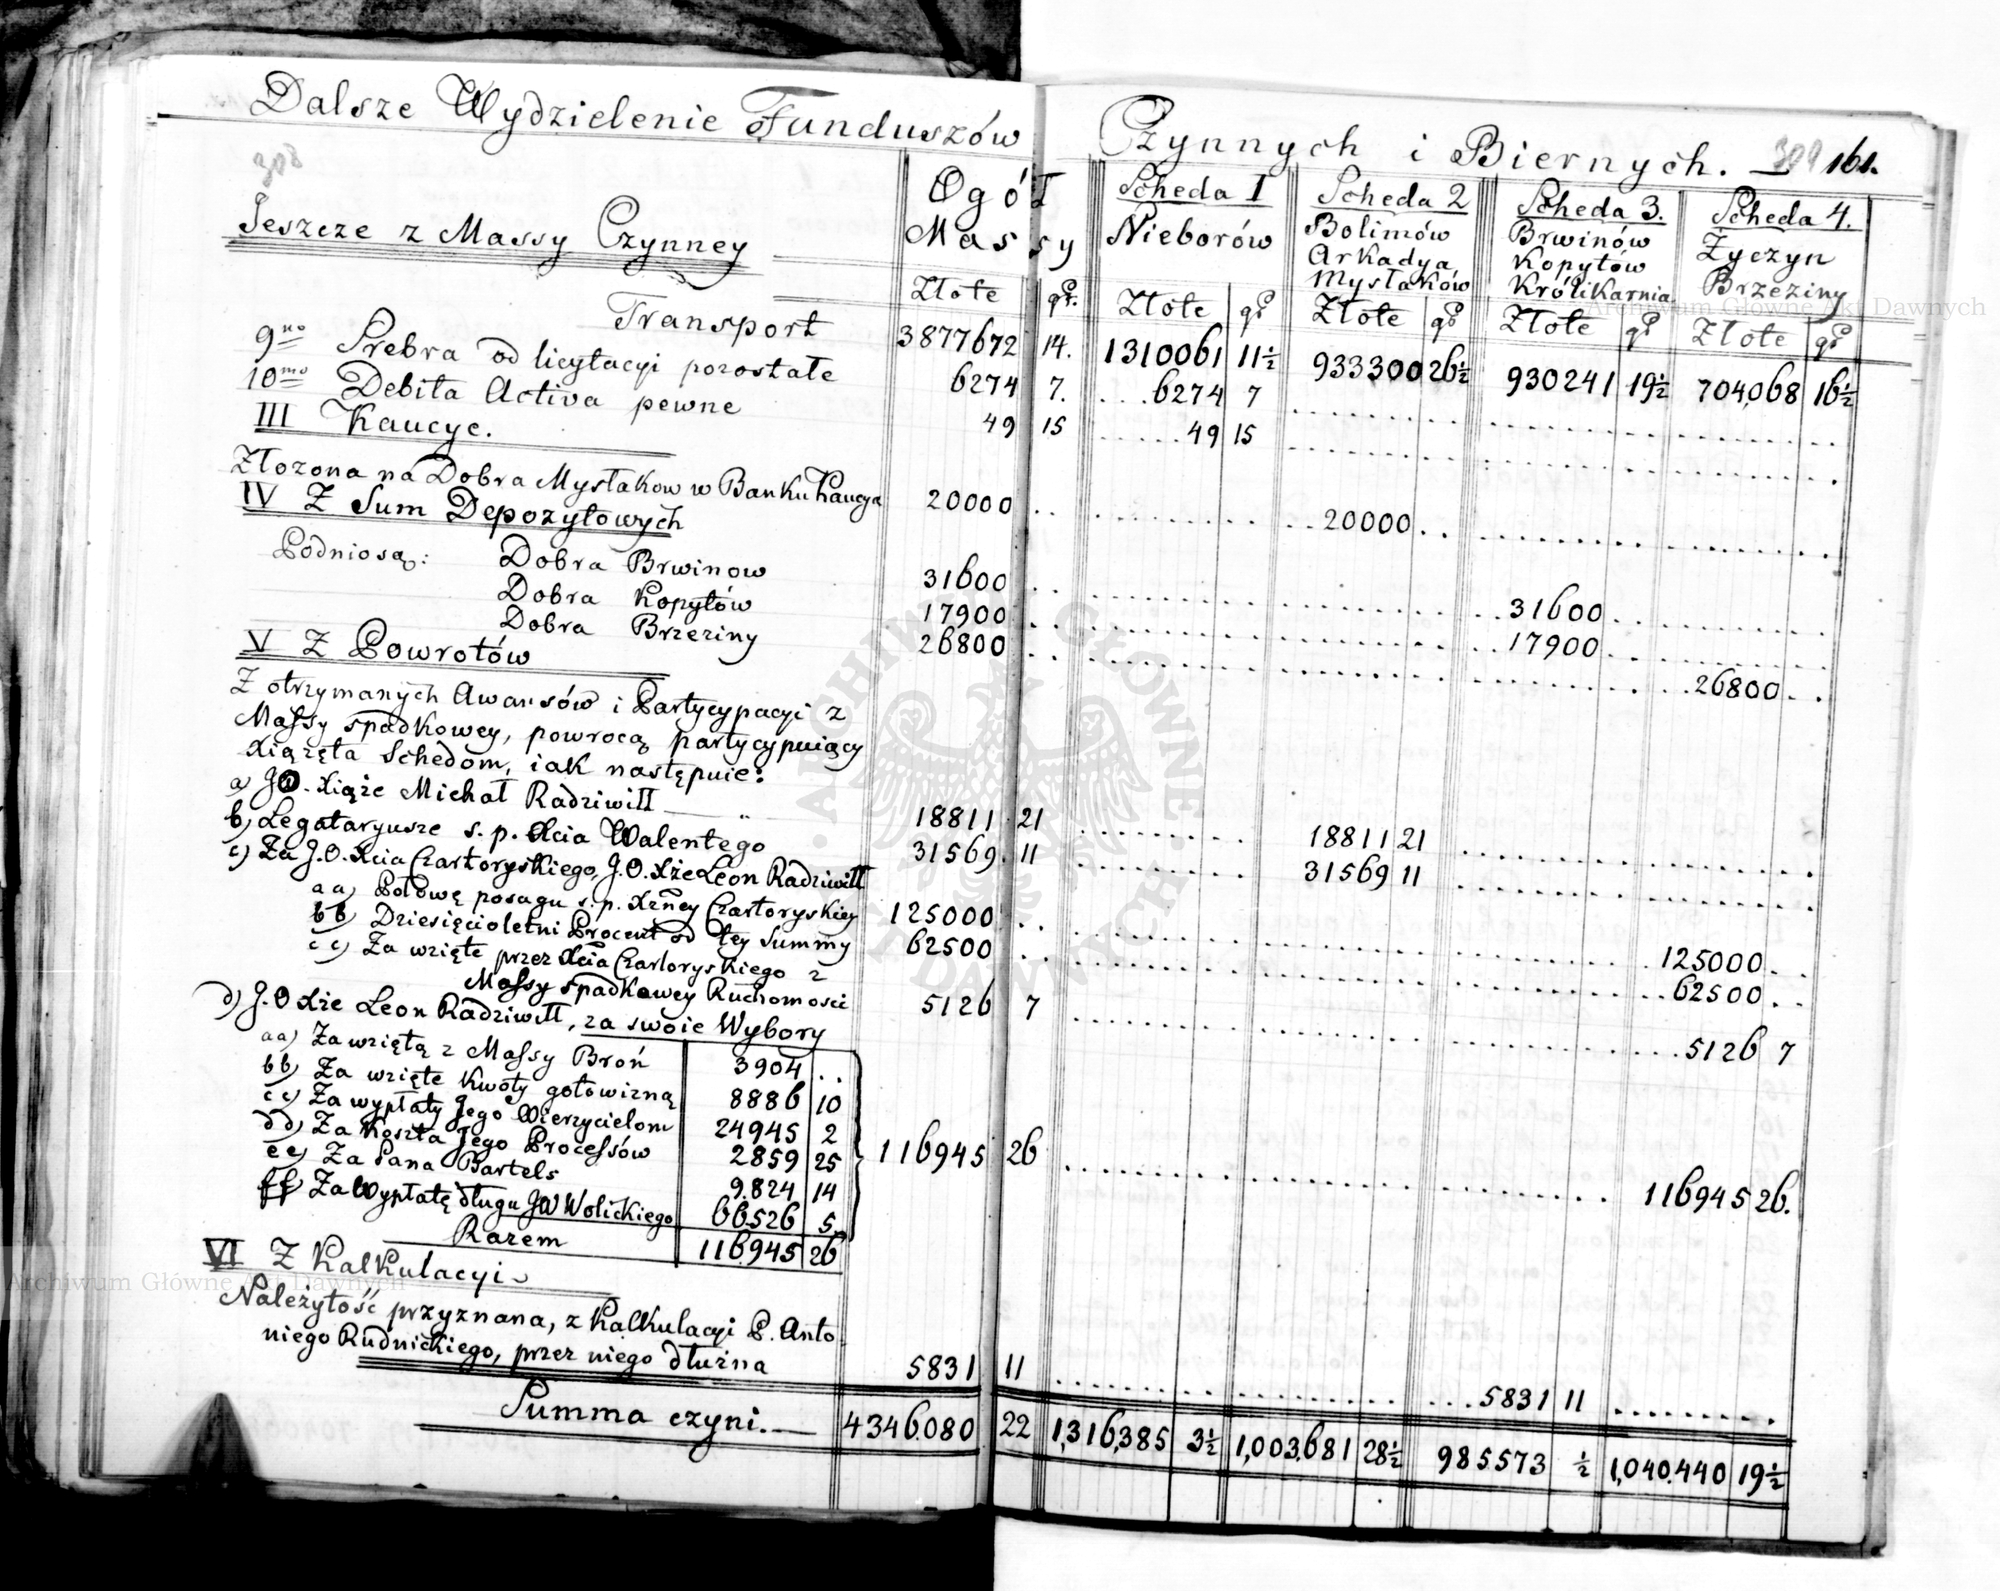 Dalsze Wydzielenie Funduszów Czynnych i Biernych. 309 161.
308
Jeszcze z Massy Czynney
Ogół Massy
Scheda 1 Nieborów
Scheda 2 Bolimów Arkadya Mysłaków
Scheda 3. Brwinów Kopytów Królikarnia
Scheda 4. Życzyn Brzeziny
Złote gr. Złote gr Złote gr Złote gr Złote gr
Transport 3877672 14. 1310061 11½ 933300 26½ 930241 19½ 704,068 16½
9no Srebra od licytacyi pozostałe 6274 7. 6274 7
10mo Debita Activa pewne 49 15 49 15
III Kaucye.
Złozona na Dobra Mysłakow w Banku Kaucya 20000 20000
IV Z Sum Depozytowych
Podniosą: Dobra Brwinow 31600 31600
Dobra Kopytów 17900 17900
Dobra Brzeziny 26800 26800
V Z Powrotów
Z otrzymanych Awansów i Partycypacyi z
Massy spadkowey, powrocą partycypuiący
Xiążęta Schedom, iak następuie:
a) JO. Xiąże Michał Radziwiłł 18811 21 18811 21
b) Legataryusze s. p. Xcia Walentego 31569. 11 31569 11
c) Za J.O. Xcia Czartoryskiego, J.O. Xże Leon Radziwiłł
aa) Połowę posagu s. p. Xżney Czartoryskiey 125000 125000
bb) Dziesięcioletni Procent od tey Summy 62500 62500
cc) Za wzięte przez Xcia Czartoryskiego z
Massy spadkowey Ruchomości 5126 7 5126 7
d) J.O Xże Leon Radziwiłł, za swoie Wybory
aa) Za wziętą z Massy Broń 3904
bb) Za wzięte Kwoty gotowizną 8886 10
cc) Za wypłaty Jego Wierzycielom 24945 2
dd) Za Koszta Jego Processów 2859 25 116945 26 116945 26.
ee) Za Pana Bartels 9.824 14
ff) Za Wypłatę długu JW Wolickiego 66.526 5.
Razem 116.945 26
VI Z Kalkulacyi
Należytość przyznana, z Kalkulacyi P. Anto-
niego Rudnickiego, przez niego dłużna 5831 11 5831 11
Summa czyni. 4346.080 22 1,316,385 3½ 1,003.681 28½ 985573 ½ 1,040.440 19½
Archiwum Główne Akt Dawnych
Archiwum Główne Akt Dawnych
ARCHIWUM GŁÓWNE AKT DAWNYCH